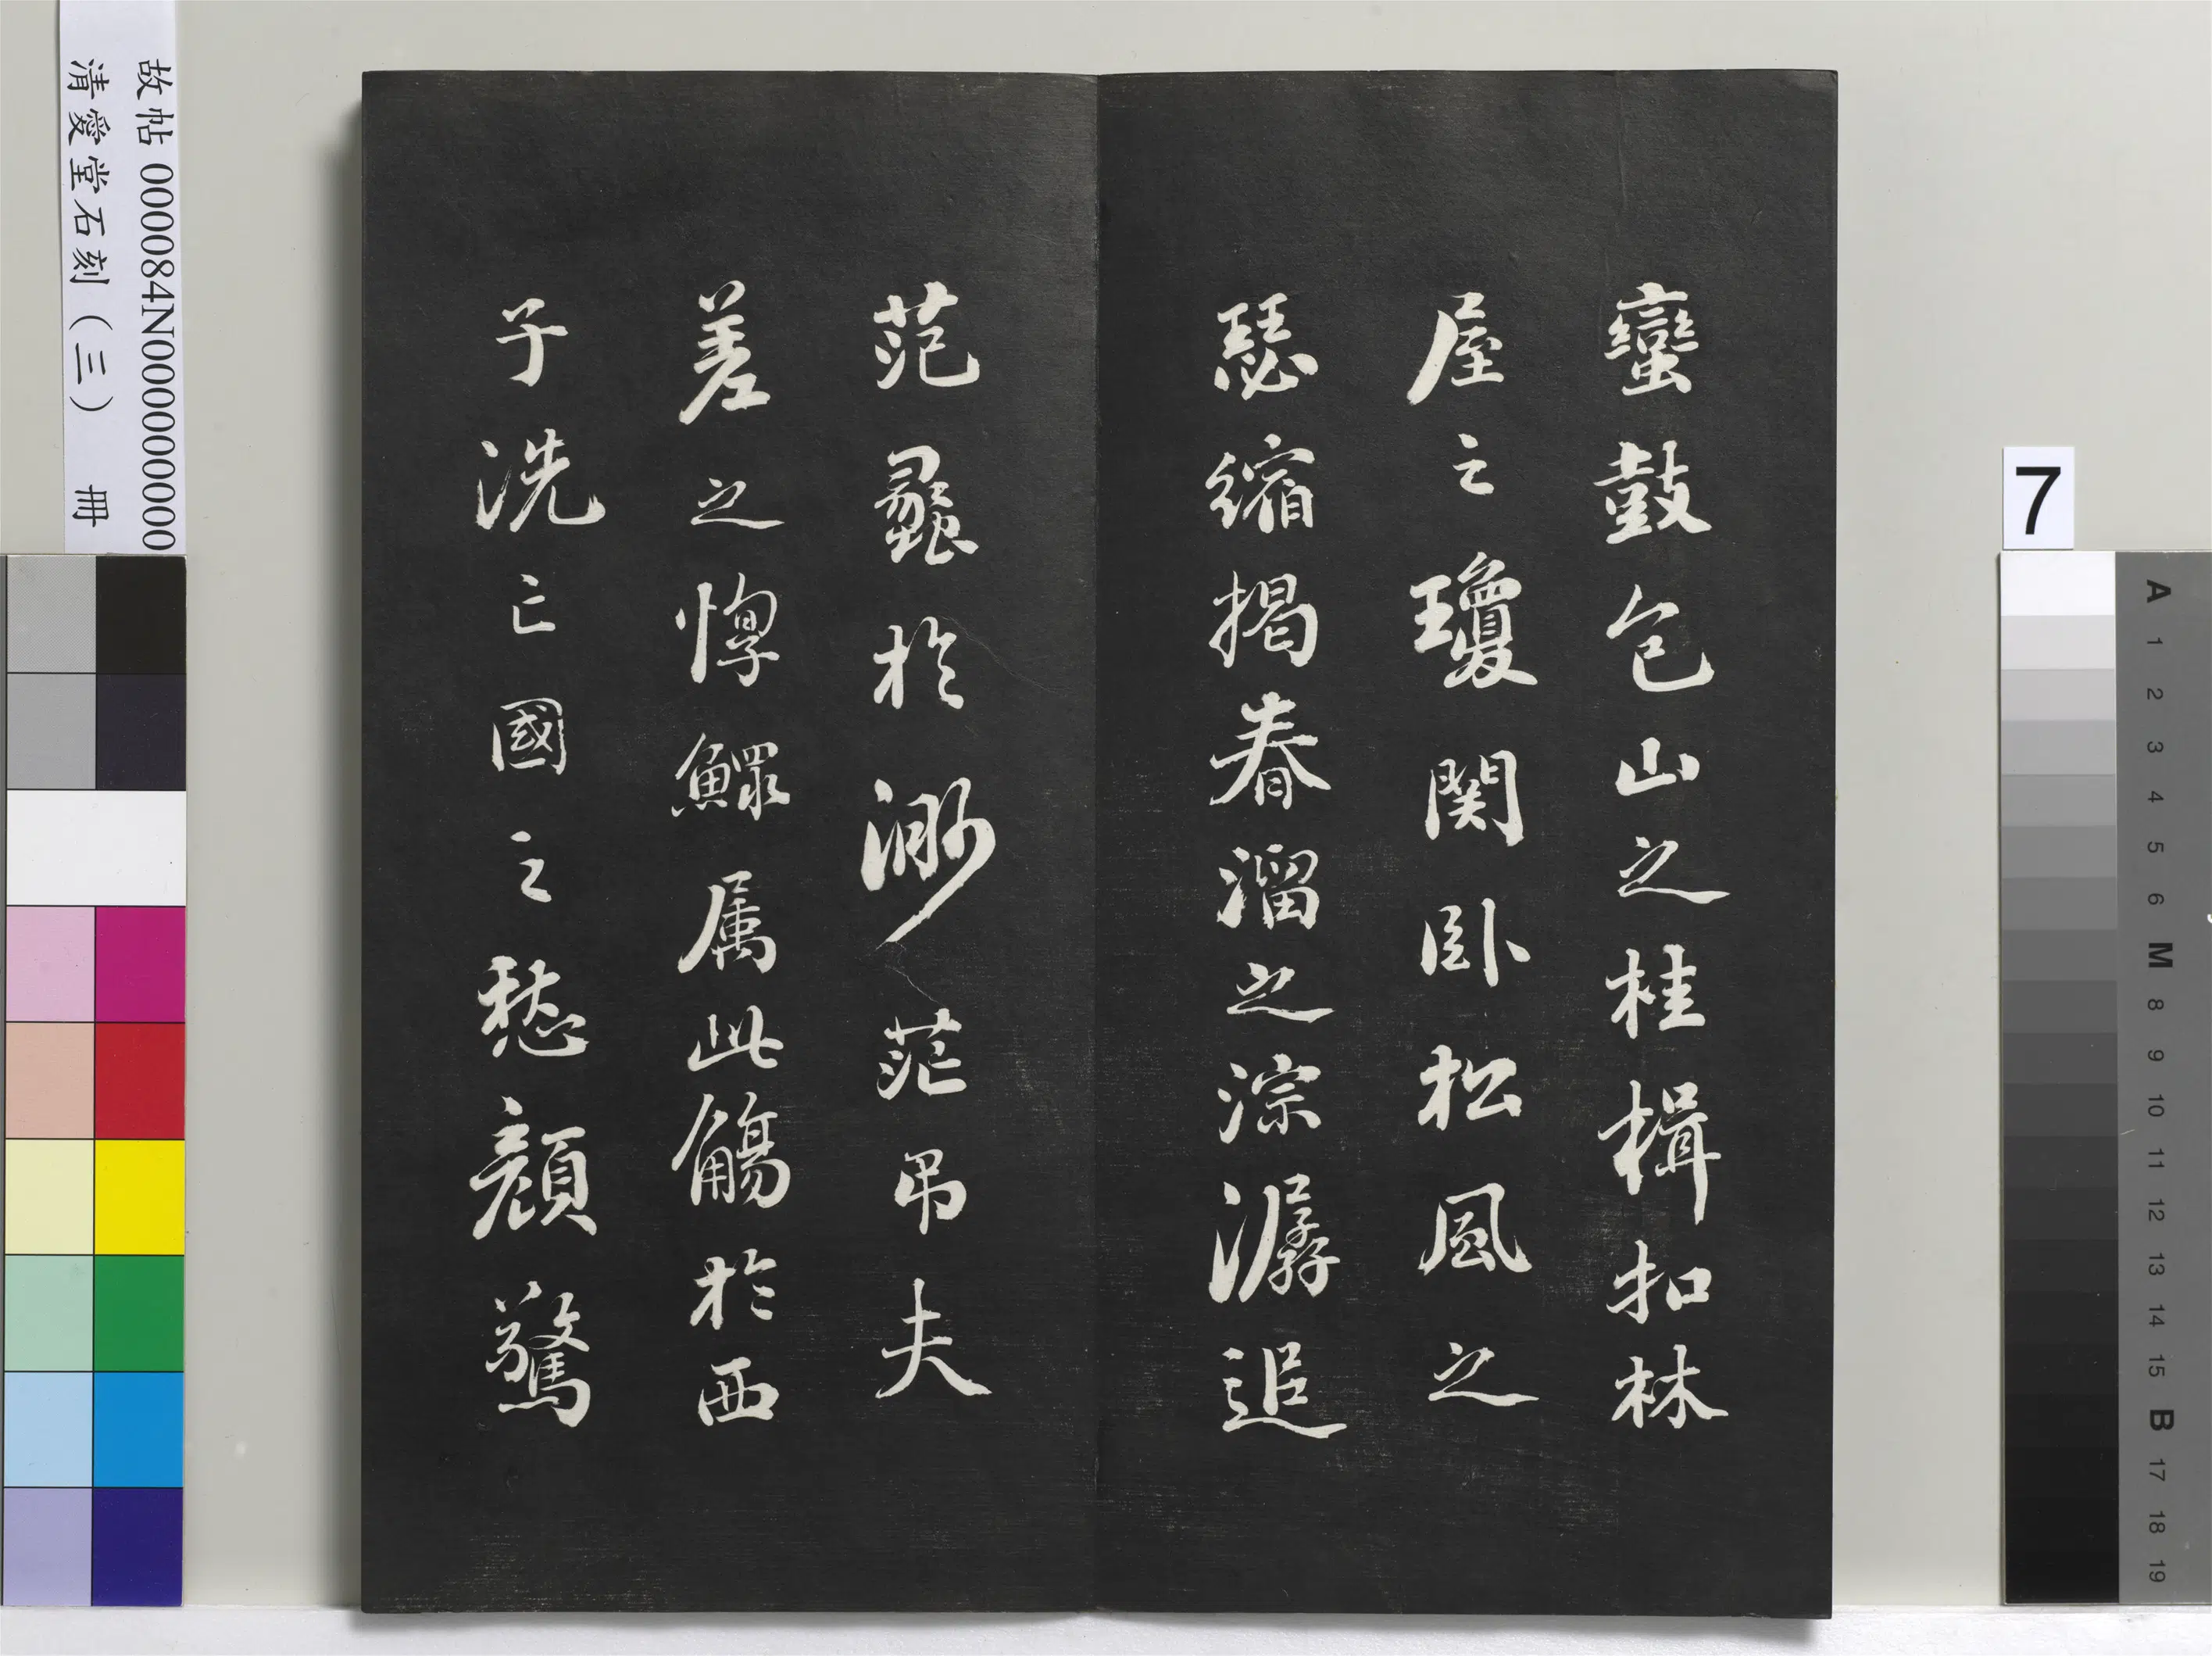 蠻鼓包山之桂楫扣林
屋之瓊関卧松風之
瑟縮揭春溜之淙潺追
范蠡於渺茫吊夫
差之惸鰥属此觴於西
子洗亡國之愁顔驚
故帖 000084N000000000
清愛堂石刻（三） 冊
7
A
1
2
3
4
5
6
M
8
9
10
11
12
13
14
15
B
17
18
19